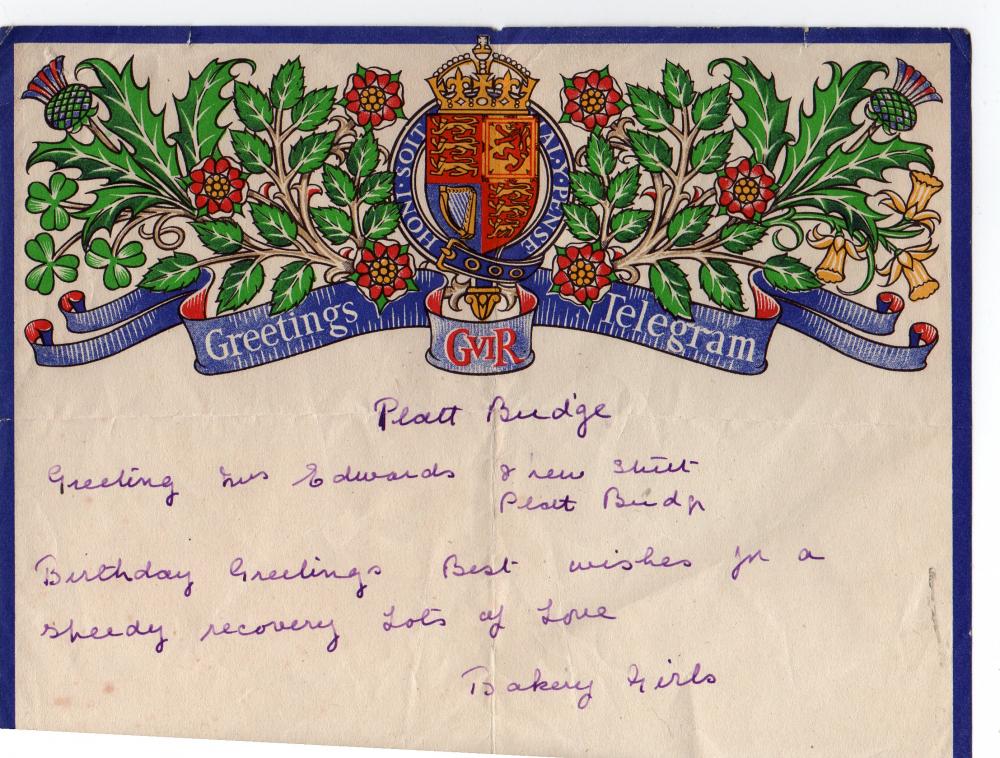 HONI · SOIT · · AL · PENSE
Greetings Telegram
GVIR
Platt Bridge
Greeting Mrs Edwards 8 new Street
Platt Bridge
Birthday Greetings Best wishes for a
speedy recovery Lots of Love
Bakery Girls